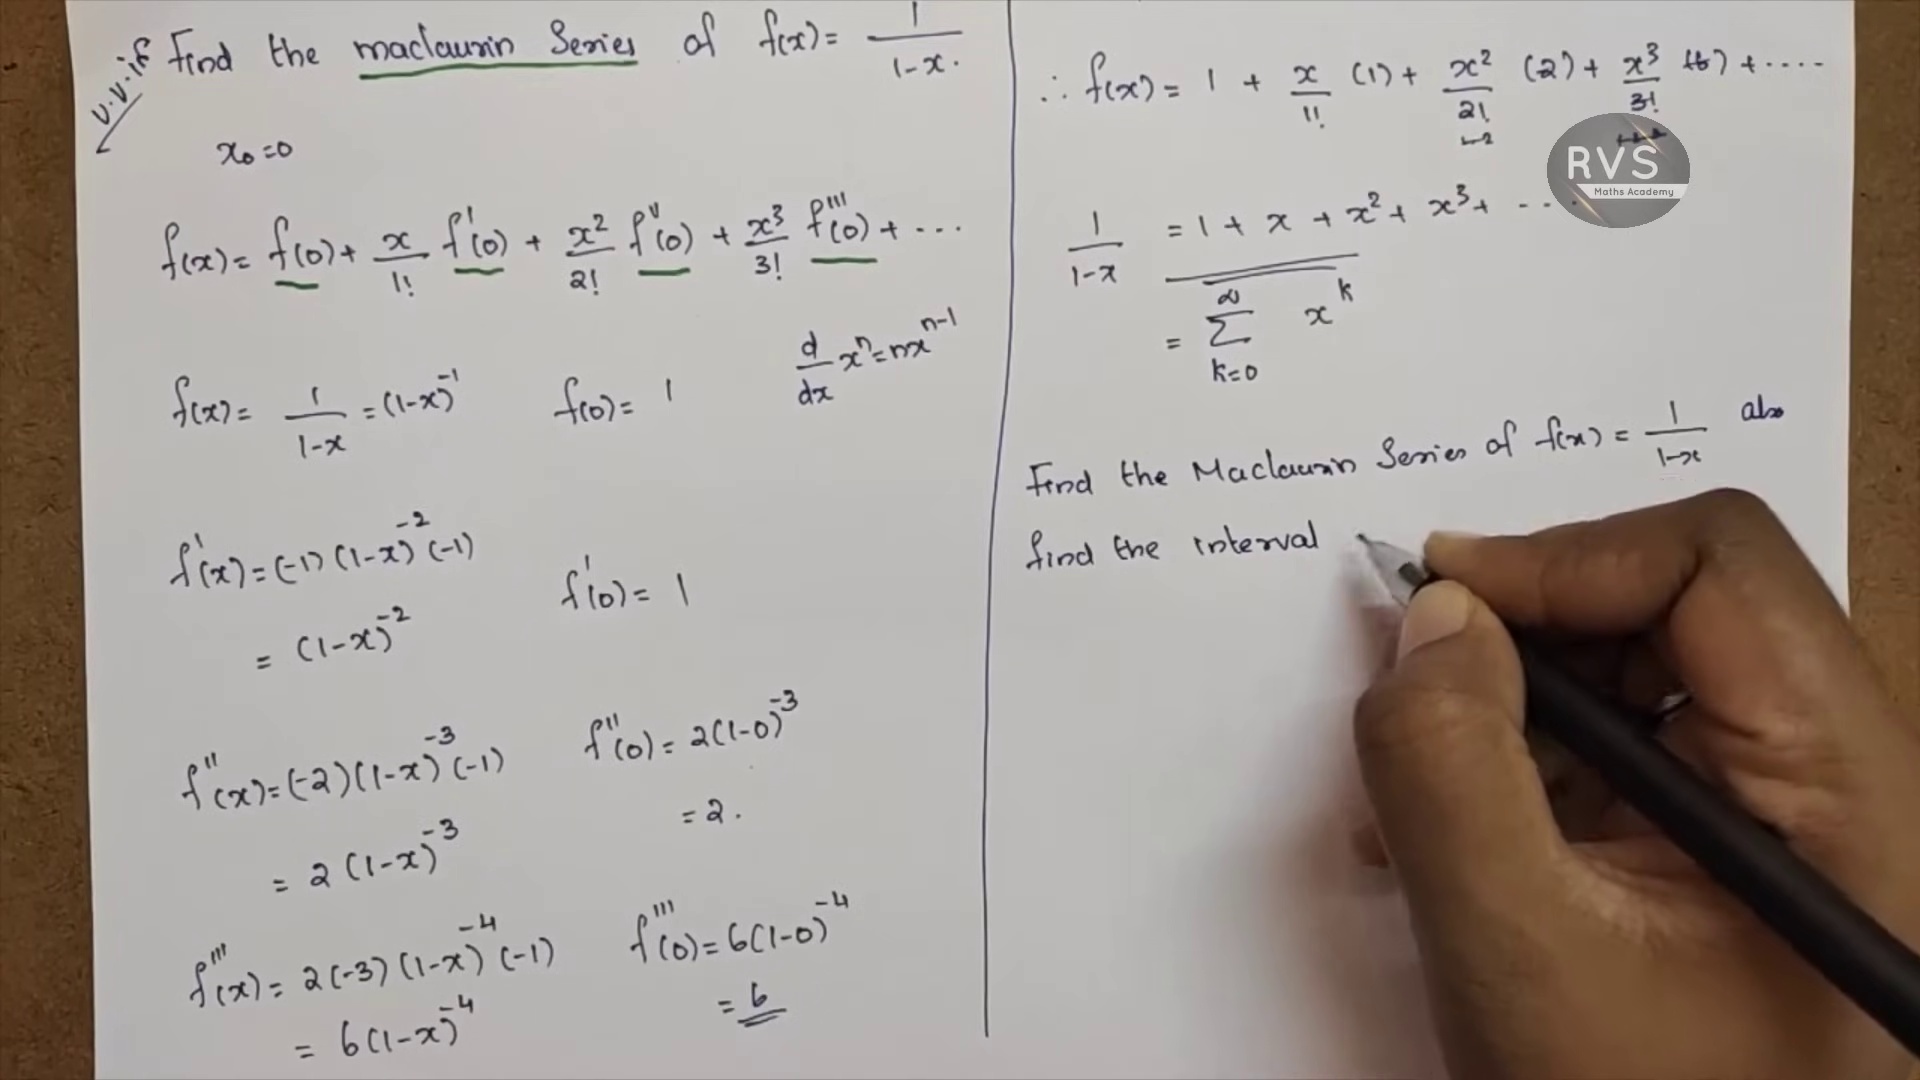 v.v.if Find the maclaurin Series of f(x) = 1/(1-x).
x₀=0
f(x) = f(0) + x/1! f'(0) + x²/2! f''(0) + x³/3! f'''(0) + ...
d/dx xⁿ = nxⁿ⁻¹
f(x) = 1/(1-x) = (1-x)⁻¹ f(0) = 1
f'(x) = (-1)(1-x)⁻²(-1)
f'(0) = 1
= (1-x)⁻²
f''(x) = (-2)(1-x)⁻³(-1) f''(0) = 2(1-0)⁻³
= 2.
= 2(1-x)⁻³
f'''(x) = 2(-3)(1-x)⁻⁴(-1) f'''(0) = 6(1-0)⁻⁴
= 6
= 6(1-x)⁻⁴
∴ f(x) = 1 + x/1! (1) + x²/2! (2) + x³/3! (6) + ....
RVS
Maths Academy
1/(1-x) = 1 + x + x² + x³ + ...
= ∞ Σ k=0 xᵏ
Find the Maclaurin Series of f(x) = 1/(1-x) also
find the interval